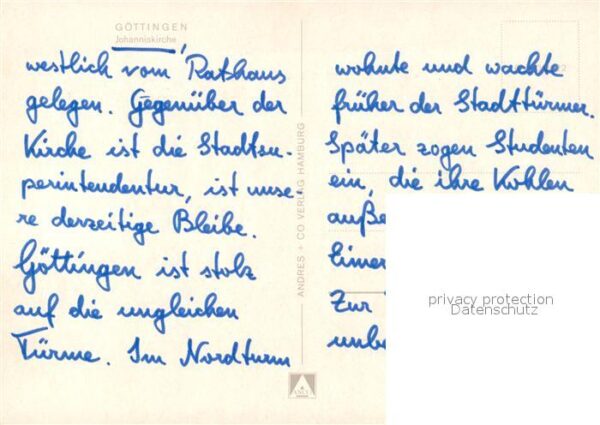 GÖTTINGEN
Johanniskirche,
westlich vom Rathaus
gelegen. Gegenüber der
Kirche ist die Stadtsu-
perintendentur, ist unse-
re derzeitige Bleibe.
Göttingen ist stolz
auf die ungleichen
Türme. Im Nordturm
ANDRES + CO VERLAG HAMBURG
wohnte und wachte
früher der Stadttürmer.
Später zogen Studenten
ein, die ihre Kohlen
auße
Eimer
Zur
unbe
privacy protection
Datenschutz